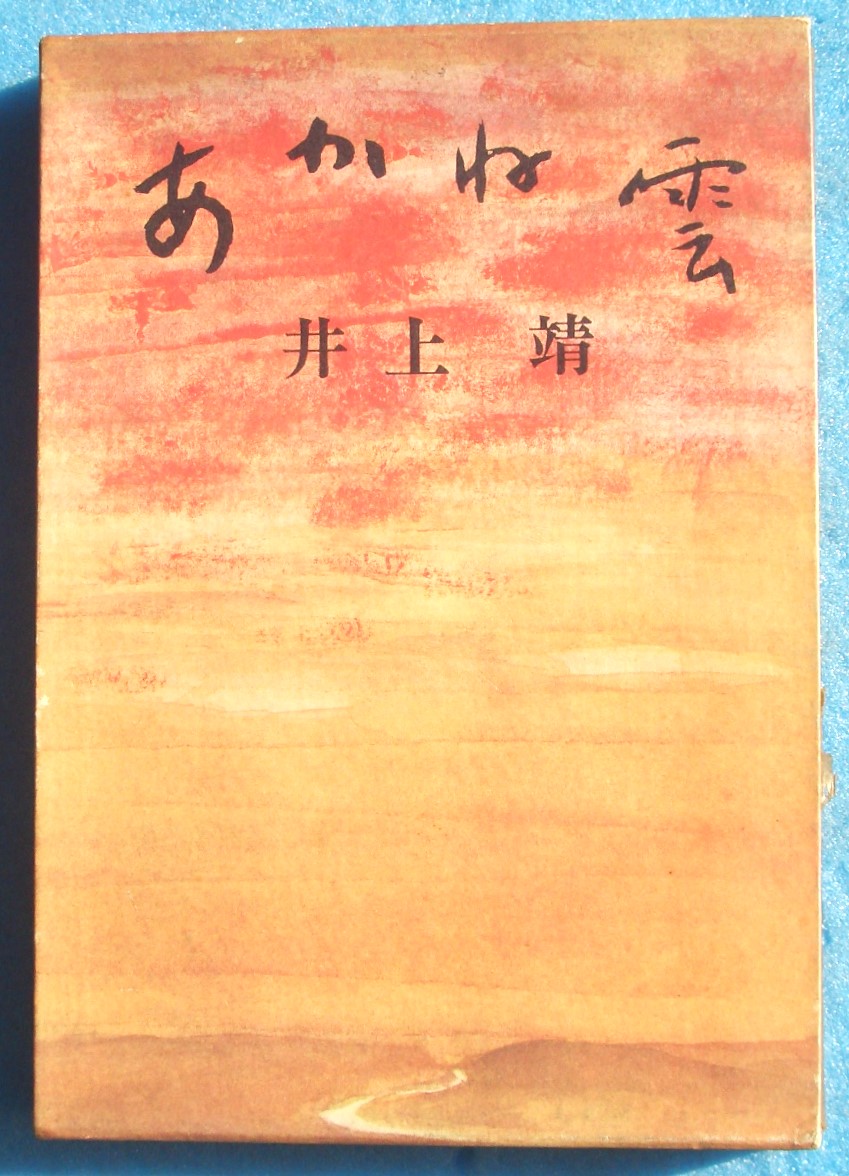 あかね雲
井上 靖